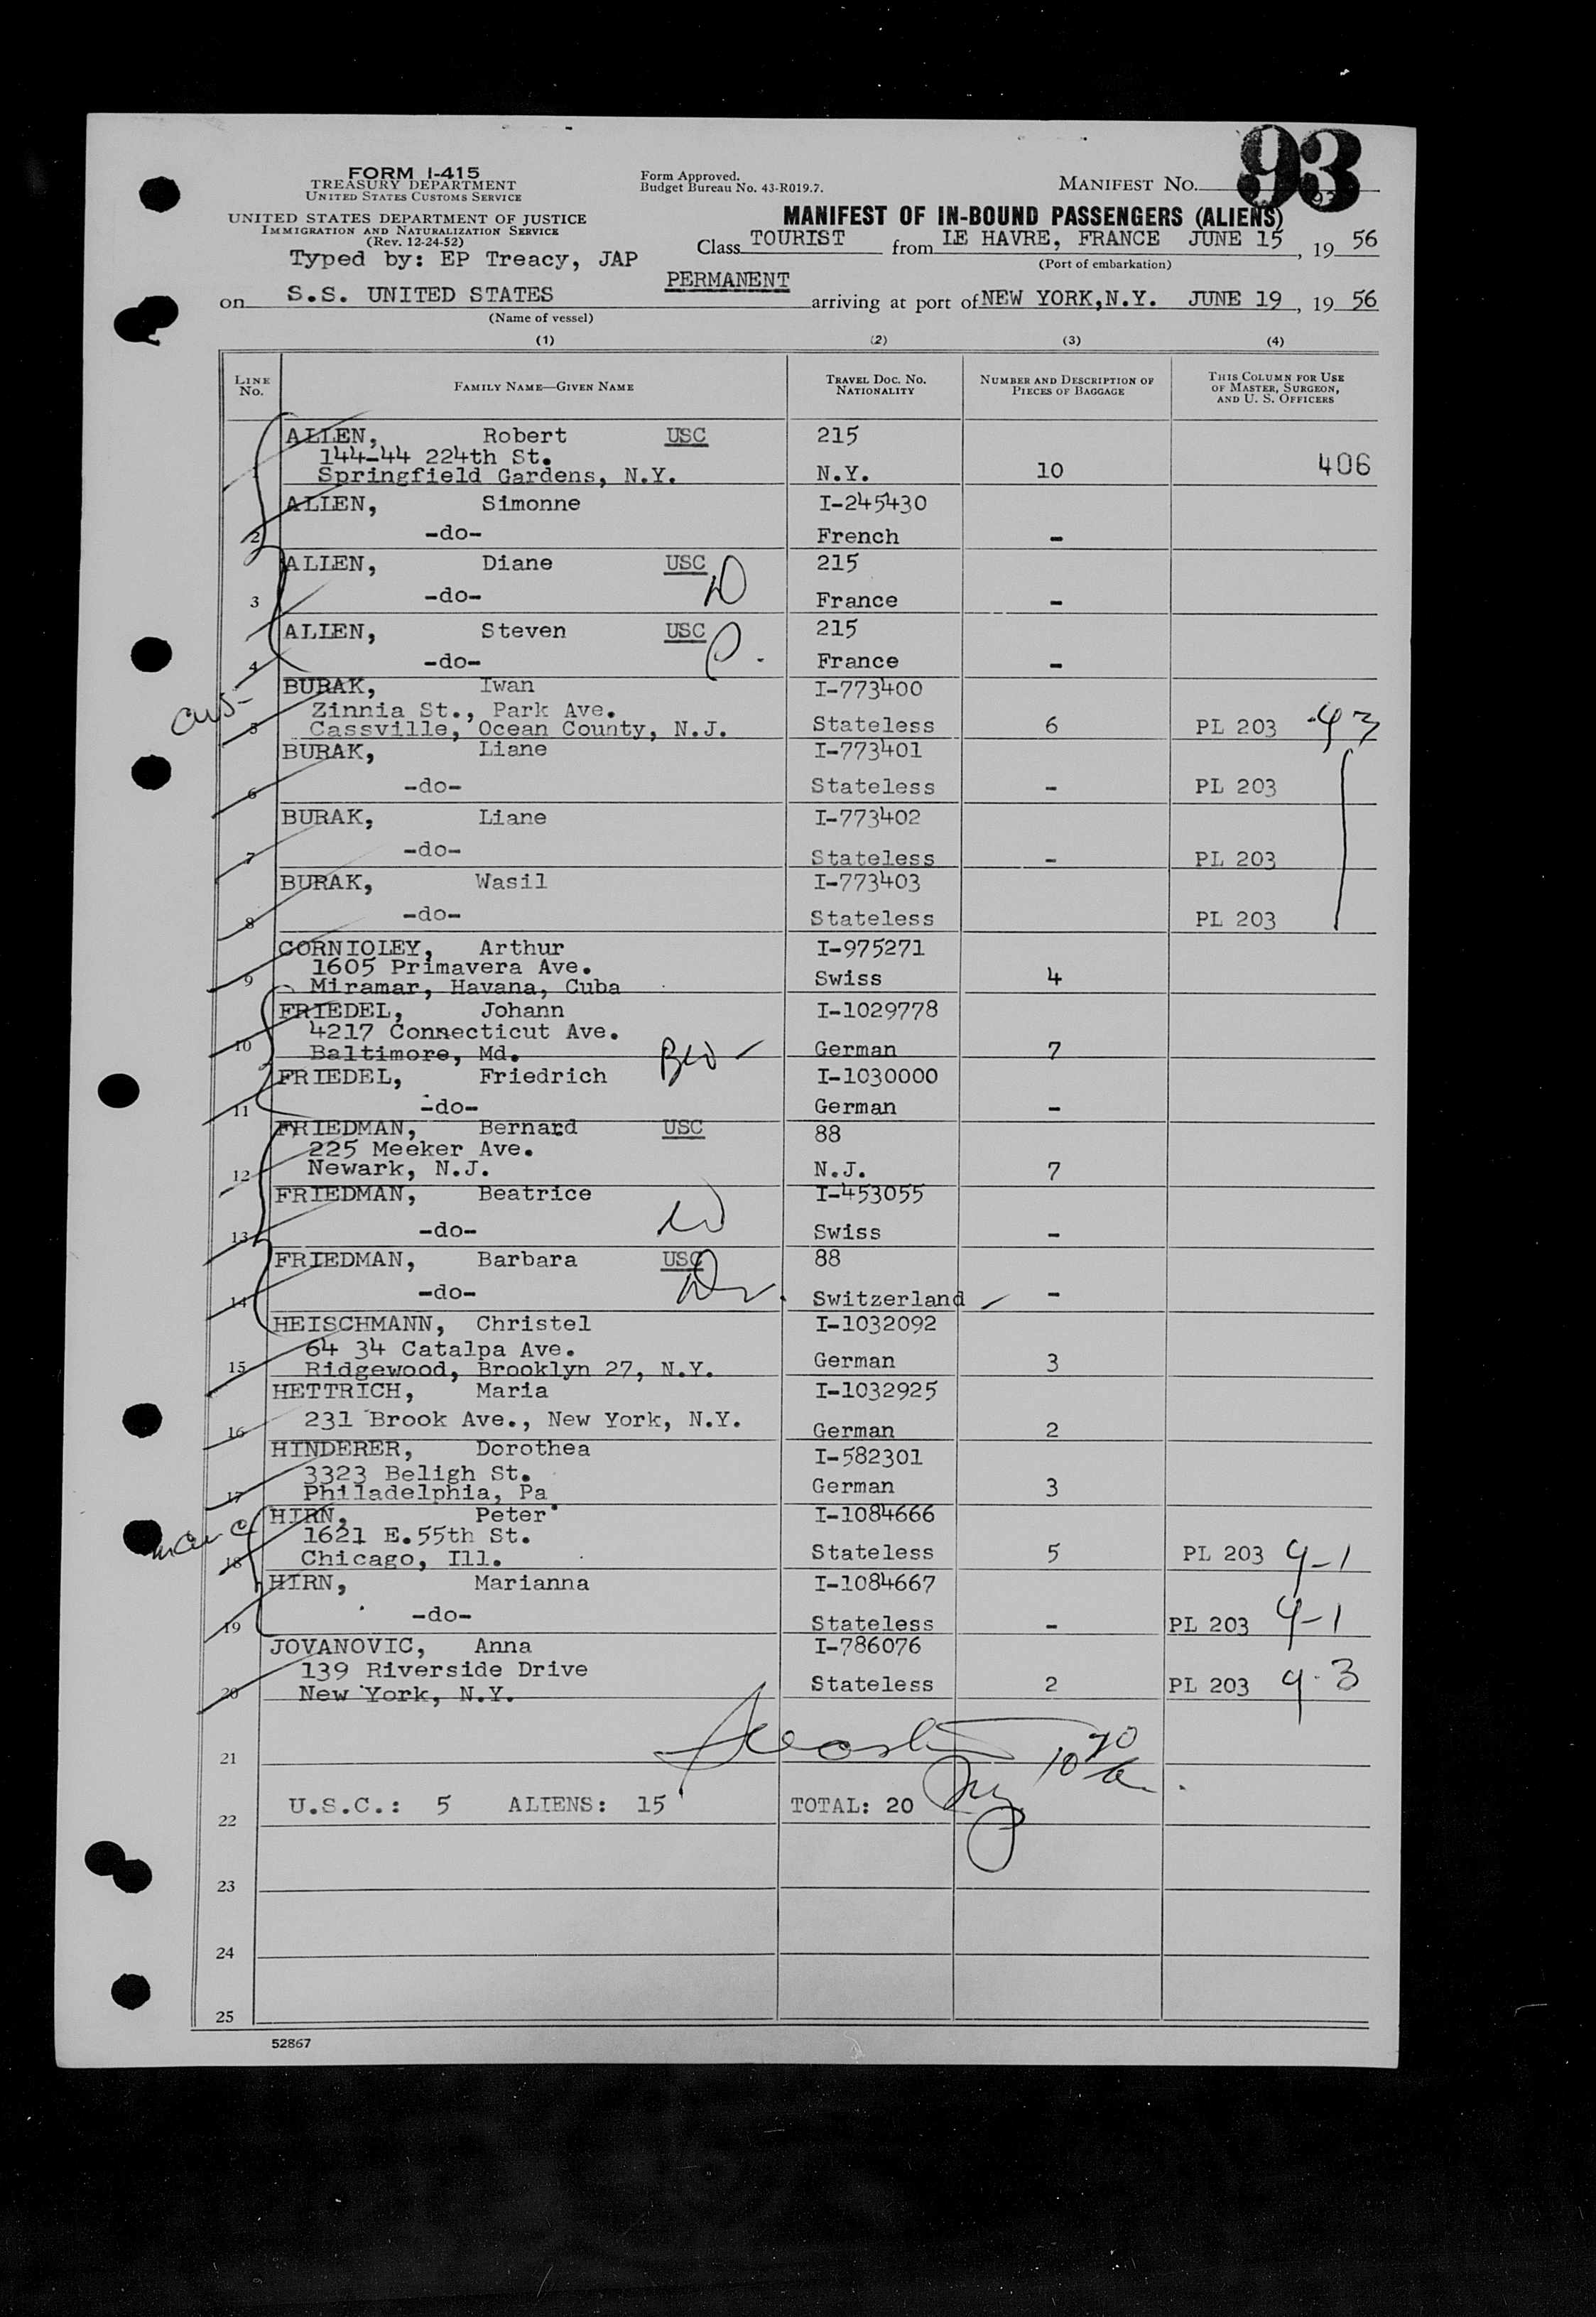 93
FORM I-415
TREASURY DEPARTMENT
UNITED STATES CUSTOMS SERVICE
UNITED STATES DEPARTMENT OF JUSTICE
IMMIGRATION AND NATURALIZATION SERVICE
(Rev. 12-24-52)
Typed by: EP Treacy, JAP
Form Approved.
Budget Bureau No. 43-R019.7.
MANIFEST NO.
MANIFEST OF IN-BOUND PASSENGERS (ALIENS)
Class TOURIST from LE HAVRE, FRANCE JUNE 15, 19 56
(Port of embarkation)
PERMANENT
on S.S. UNITED STATES arriving at port of NEW YORK,N.Y. JUNE 19, 19 56
(Name of vessel)
(1) (2) (3) (4)
LINE NO. FAMILY NAME—GIVEN NAME TRAVEL DOC. NO. NATIONALITY NUMBER AND DESCRIPTION OF PIECES OF BAGGAGE THIS COLUMN FOR USE OF MASTER, SURGEON, AND U. S. OFFICERS
ALLEN, Robert USC 215
144-44 224th St.
1 Springfield Gardens, N.Y. N.Y. 10 406
ALLEN, Simonne I-245430
2 -do- French -
ALLEN, Diane USC 215
3 -do- France -
ALLEN, Steven USC 215
4 -do- France -
BURAK, Iwan I-773400
Zinnia St., Park Ave.
5 Cassville, Ocean County, N.J. Stateless 6 PL 203 43
BURAK, Liane I-773401
6 -do- Stateless - PL 203
BURAK, Liane I-773402
7 -do- Stateless - PL 203
BURAK, Wasil I-773403
8 -do- Stateless PL 203
CORNIOLEY, Arthur I-975271
1605 Primavera Ave.
9 Miramar, Havana, Cuba Swiss 4
FRIEDEL, Johann I-1029778
4217 Connecticut Ave.
10 Baltimore, Md. German 7
FRIEDEL, Friedrich I-1030000
11 -do- German -
FRIEDMAN, Bernard USC 88
225 Meeker Ave.
12 Newark, N.J. N.J. 7
FRIEDMAN, Beatrice I-453055
13 -do- Swiss -
FRIEDMAN, Barbara USC 88
14 -do- Switzerland -
HEISCHMANN, Christel I-1032092
64 34 Catalpa Ave.
15 Ridgewood, Brooklyn 27, N.Y. German 3
HETTRICH, Maria I-1032925
16 231 Brook Ave., New York, N.Y. German 2
HINDERER, Dorothea I-582301
3323 Beligh St.
17 Philadelphia, Pa German 3
HIRN, Peter I-1084666
1621 E.55th St.
18 Chicago, Ill. Stateless 5 PL 203 4-1
HIRN, Marianna I-1084667
19 -do- Stateless - PL 203 4-1
JOVANOVIC, Anna I-786076
139 Riverside Drive
20 New York, N.Y. Stateless 2 PL 203 4-3
21
22 U.S.C.: 5 ALIENS: 15 TOTAL: 20
23
24
25
52867